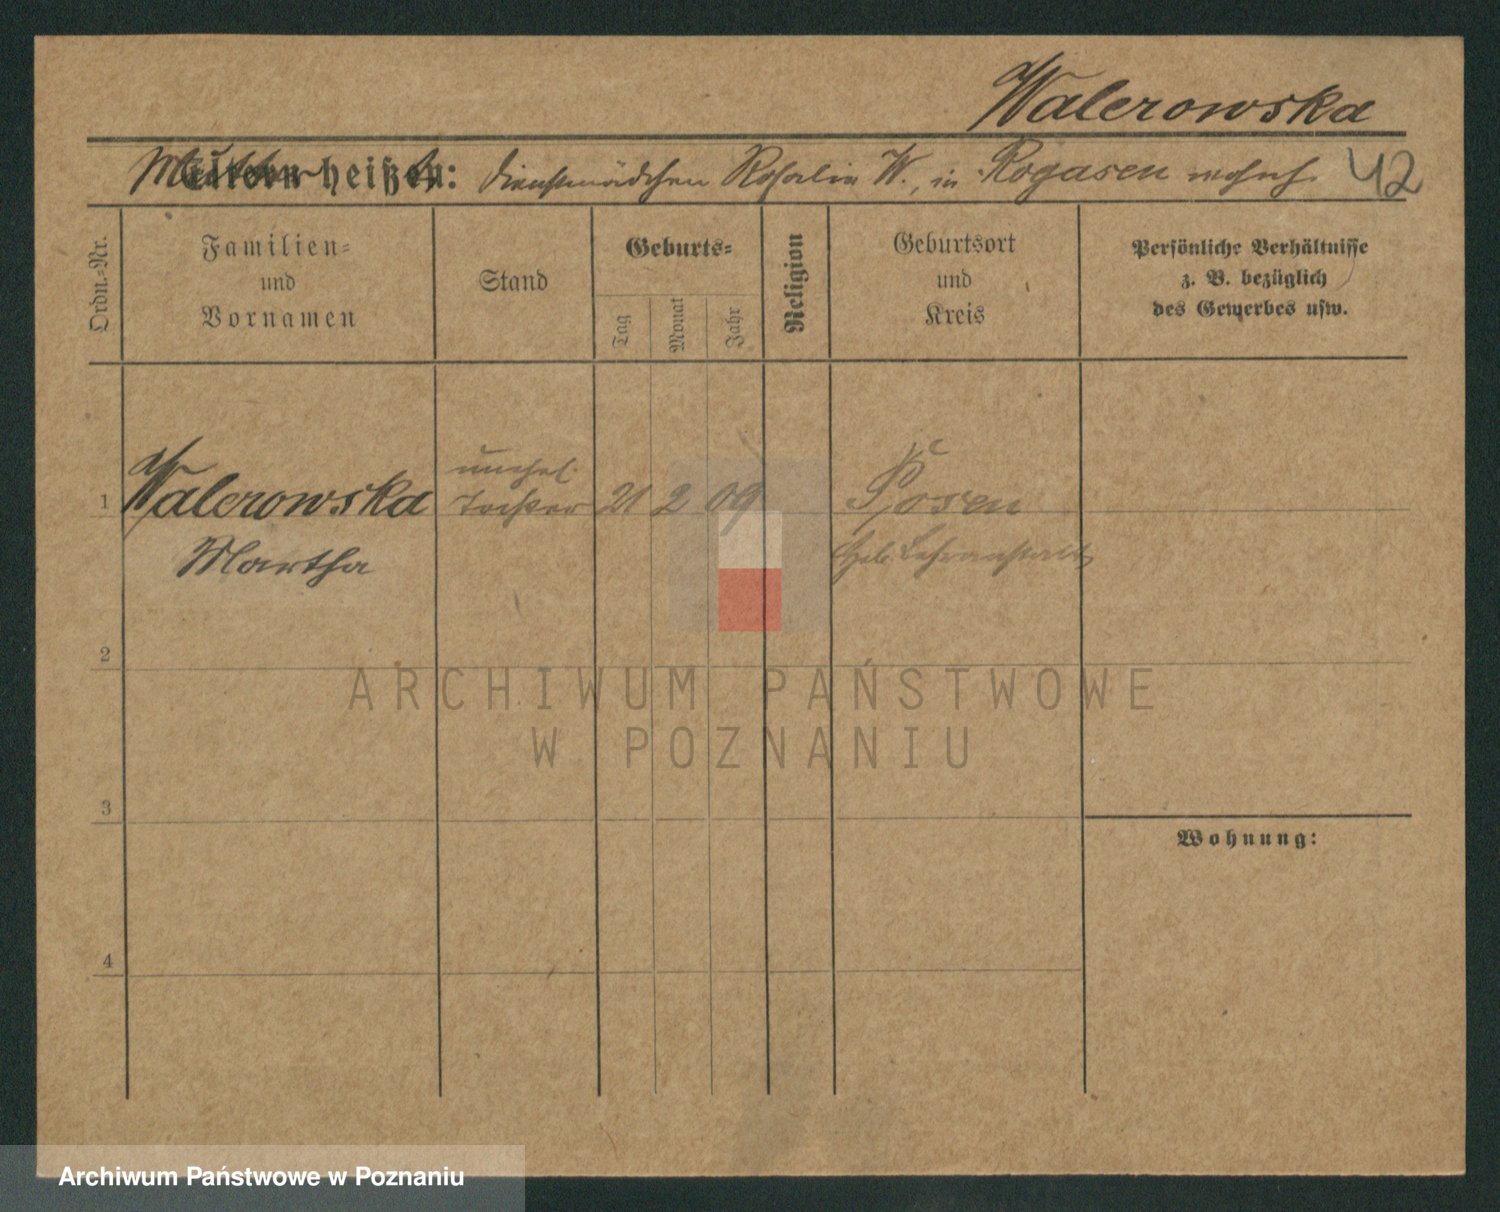 Walerowska
Mutter heißt: Dienstmädchen Rosalie W., in Rogasen wohnh. 42
Ordn.-Nr.
Familien-
und
Vornamen
Stand
Geburts-
Tag
Monat
Jahr
Religion
Geburtsort
und
Kreis
Persönliche Verhältnisse
z. B. bezüglich
des Gewerbes usw.
unehel.
1 Walerowska Tochter 21 2 09 Posen
Martha Heb. Lehranstalt
2
ARCHIWUM PAŃSTWOWE
W POZNANIU
3
Wohnung:
4
Archiwum Państwowe w Poznaniu